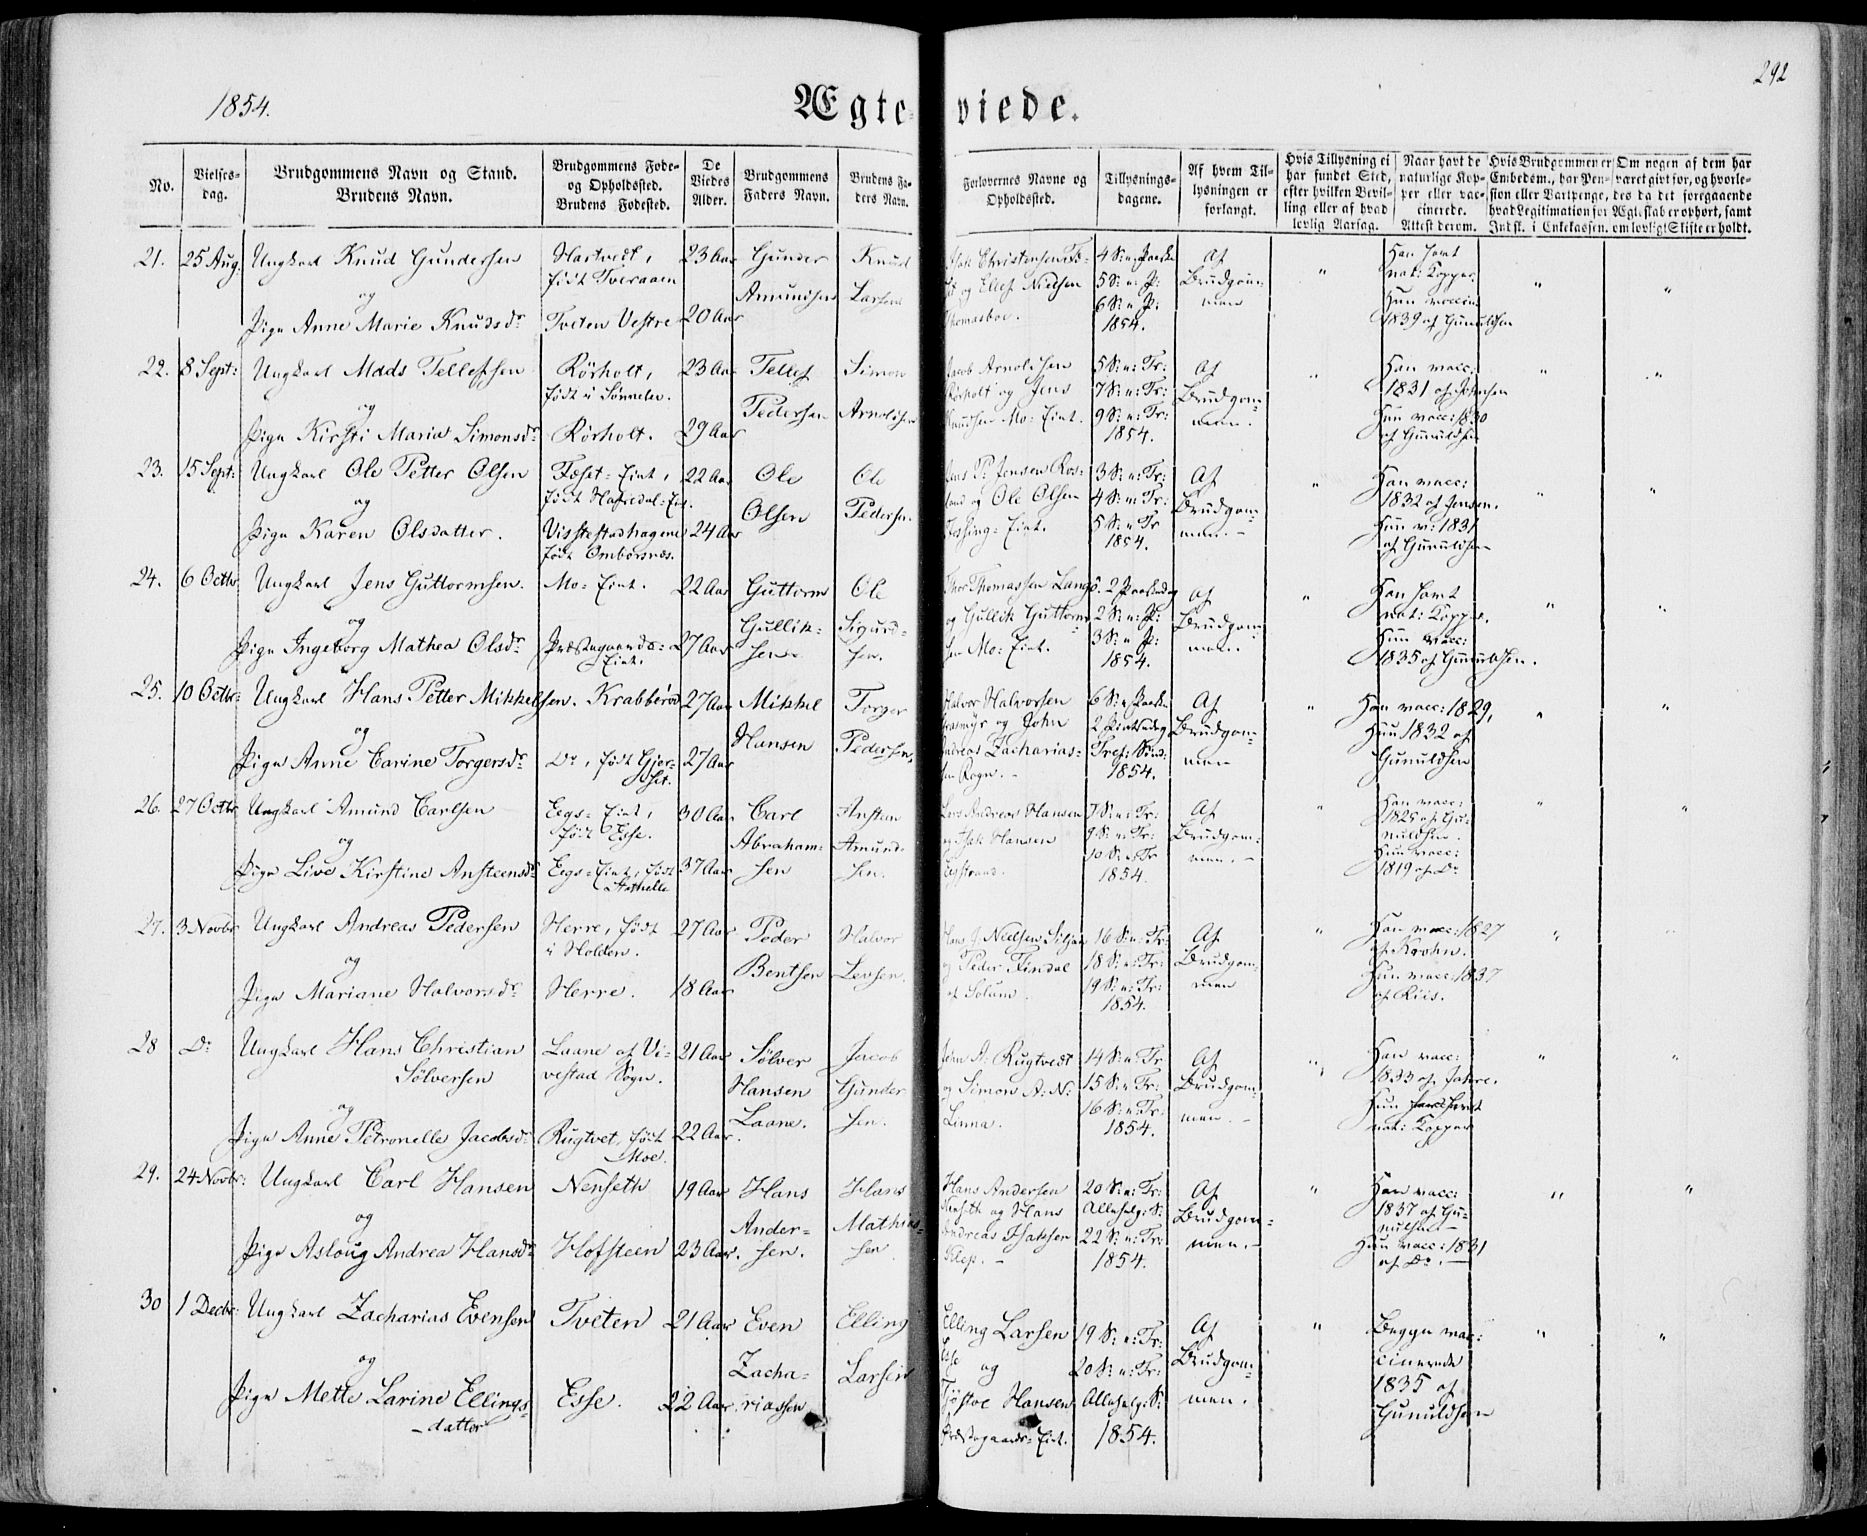 1854.
Ægteviede.
292
No.
Vielses-
dag.
Brudgommens Navn og Stand.
Brudens Navn.
Brudgommens Føde-
og Opholdssted.
Brudens Fødested.
De
Viedes
Alder.
Brudgommens
Faders Navn.
Brudens Fa-
ders Navn.
Forlovernes Navne og
Opholdssted.
Tillysnings-
dagene.
Af hvem Til-
lysningen er
forlangt.
Hvis Tillysning ei
har fundet Sted,
efter hvilken Bevil-
ling eller af hvad
lovlig Aarsag.
Naar havt de
naturlige Kop-
per eller vac-
cinerede.
Attest derom.
Hvis Brudgommen er
Embedsm., har Pen-
sion eller Vartpenge,
hvad Legitimation for
Indsk. i Enkekassen.
Om nogen af dem har
været givt før, og hvorle-
des da det foregaaende
Ægteskab er ophørt, samt
om lovligt Skifte er holdt.
21. 25 Aug. Ungkarl Knud Gundersen
og
Pige Anne Marie Knudsdr
Hartvedt,
født Tveraaen
Tveten Vestre
23 Aar
20 Aar
Gunder
Amundsen
Knud
Larsen
og Ellef Nielsen
Thomasboe.
4 S: e: Paaske
5 S: e: P:
6 S: e: P:
1854.
Af
Brudgom-
men
Han havt
nat: Kopper
Hun vaccin:
1839 af Gunuldsen
22. 8 Sept: Ungkarl Mads Tellefsen
og
Pige Kirsti Maria Simonsdr
Rørholt,
født i Sønneløv.
Rørholt.
23 Aar
29 Aar
Tellef
Pedersen
Simon
Arnoldsen
Jacob Arnoldsen
Rørholt og Jens
Knudsen Mo-Eiet.
5 S: e: Tr:
7 S: e: Tr:
9 S: e: Tr:
1854.
Af
Brudgom-
men.
Han vacc:
1831 af
Hun vacc: 1830
af Gunuldsen
23. 15 Sept: Ungkarl Ole Petter Olsen
og
Pige Karen Olsdatter.
født Hafredal-Eiet.
22 Aar
24 Aar
Ole
Olsen
Ole
Pedersen.
Jens P. Jensen Ros-
land og Ole Olsen
3 S: e: Tr:
4 S: e: Tr:
5 S: e Tr
1854.
Af
Brudgom-
men. -
Han vacc:
1832 af Jensen.
Hun v: 1831
af Gunuldsen
24. 6 Octbr Ungkarl Jens Guttormsen.
og
Pige Ingeborg Mathea Olsdr
Mo-Eiet.
Præstegaards-
Eiet.
22 Aar
27 Aar
Guttorm
Gullik-
sen.
Ole
Sigurd-
sen.
Thor Thomassen Langø.
og Gullik Guttorm-
sen Mo-Eiet.
2 Paaskedag
2 S: e: P:
3 S: e P:
1854.
Af
Brudgom-
men.
Han havt
nat: Kopper.
Hun vacc:
1835 af Gunuldsen.
25. 10 Octbr: Ungkarl Hans Petter Mikkelsen.
og
Pige Anne Carine Torgersdr
Krabberød
Do, født Gjer-
set.
27 Aar
27 Aar
Mikkel
Hansen
Torger
Pedersen,
Halvor Halvorsen
og John
Andreas Zacharias-
sen Rogn. -
6 S: e Paaske
2 Pintsedag
Tref: Sønd:
1854.
Af
Brudgom-
men
Han vacc: 1829,
Hun 1832 af
Gunuldsen
26. 27 Octbr Ungkarl Amund Carlsen
og
Pige Live Kirstine Ansteensdr
Eegs-Eiet,
født Esse.
Eegs-Eiet, født
Stathelle
30 Aar
37 Aar
Carl
Abraham-
sen
Ansten
Amund-
sen.
Lars Andreas Hansen
og Isak Hansen
Eegstrand.
7 S: e: Tr:
9 S: e: Tr:
10 S: e: Tr
1854.
Af
Brudgom-
men. -
Han vacc:
1825 af Gu-
nuldsen.
Hun vacc:
1819 af Do
27. 3 Novbr Ungkarl Andreas Pedersen
og
Pige Mariane Halvorsdr
Herre, født
i Holden.
Herre.
27 Aar
18 Aar
Peder
Bentsen
Halvor
Levsen.
Hans J. Nielsen Siljan
og Peder Findal
af Solum.
16 S: e: Tr:
18 S: e: Tr:
19 S: e: Tr:
1854.
Af
Brudgom-
men
Han vacc: 1827
af Krohn.
Hun vacc: 1837
af Riis.
28 Do Ungkarl Hans Christian
Sølversen
og
Pige Anne Petronelle Jacobsdr
Laane af Vi-
vestad Sogn.
Rugtvet, født
Moe.
21 Aar
22 Aar
Sølver
Hansen
Laane.
Jacob
Gunder-
sen.
John A: Rugtvedt
og Simon A: N:
Linna.
14 S: e: Tr
15 S: e: Tr:
16 S: e: Tr:
1854.
Af
Brudgom-
men. -
Han vacc:
1833 af
Hun havt
nat: Kopper
29. 24 Novbr: Ungkarl Carl Hansen
og
Pige Asloug Andrea Hansdr
Nenseth
Hofsteen
19 Aar
23 Aar.
Hans
Ander-
sen.
Hans
Mathias-
sen.
Hans Andersen
Nenseth og Hans
Andreas Isaksen
20 S: e: Tr:
Allehelg: S:
22 S: e: Tr:
1854.
Af
Brudgom-
men. -
Han vacc:
1837 af Gu-
nulsen -
Hun vacc: 1831
af Do. -
30 1 Decbr: Ungkarl Zacharias Evensen
og
Pige Mette Larine Ellings-
datter
Tveten
Esse.
21 Aar
22 Aar.
Even
Zacha-
riassen
Elling
Larsen
Elling Larsen
Esse
og
Tjøstov Hansen
Præstegaards-Eiet.
19 S: e: Tr:
20 S: e: Tr:
Allehelg: S:
1854.
Af
Brudgom-
men.
Begge vac-
cinerede
1835 af
Gunuldsen